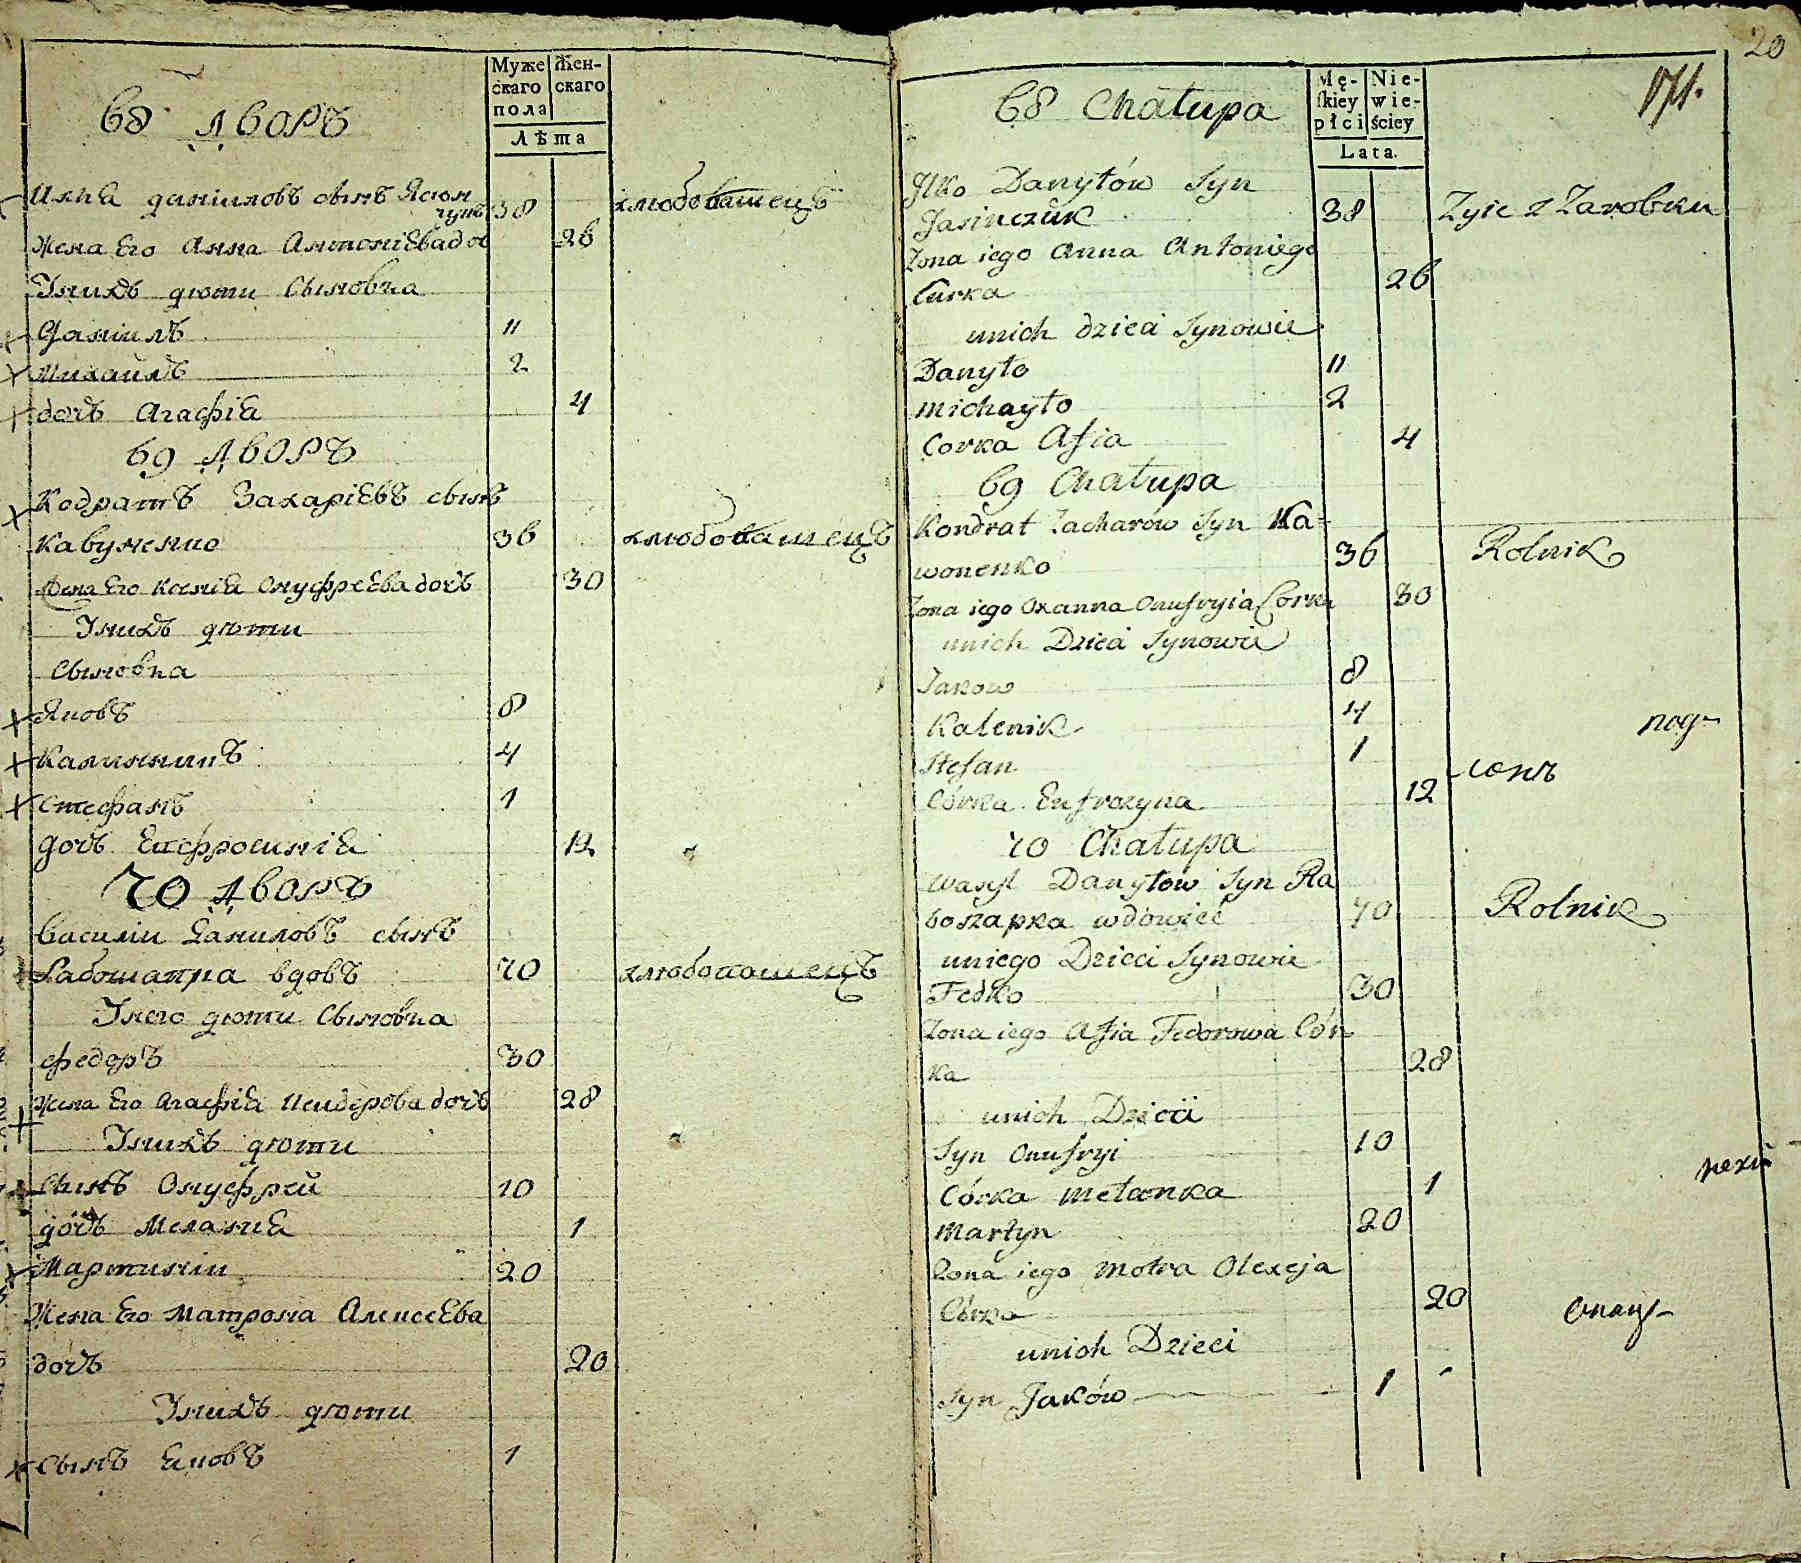 Муже
скаго
пола
Жен-
скаго
Лѣта
68 дворъ
Илка даніиловъ сынъ Ясюн
чукъ 38 хлебопашецъ
Жена Его Анна Антоніева до 26
Унихъ дѣти Сыновья
Даніилъ 11
Михайлъ 2
дочъ Агафія 4
69 дворъ
Кодратъ Захаріевъ сынъ
Кавуненко 36 хлюбопашецъ
Жена Его Ксенія Онуфреева дочъ 30
Унихъ дѣти
Сыновья
Яковъ 8
Калинникъ 4
Стефанъ 1
дочъ Евфросинія 12
70 дворъ
Василій Даниловъ сынъ
Рабошапка вдовъ 70 хлюбопашецъ
Унего дѣти Сыновья
Федоръ 30
Жена Его Агафія дочъ 28
Унихъ дѣти
Сынъ Онуфрей 10
дочъ Меланія 1
Мартиній 20
Жена Его Матрона Алексеева
дочъ 20
Унихъ дѣти
Сынъ Яковъ 1
20
Mę-
skiey
płci
Nie-
wie-
ściey
Lata.
171.
68 Chałupa
Ilko Danyłów Syn
Jasinczuk 38 Zyie z Zarobku
Zona iego Anna Antoniego
Curka 26
unich dzieci Synowie
Danyło 11
Michayło 2
Corka Afia 4
69 Chałupa
Kondrat Zacharów Syn Ka=
wonenko 36 Rolnik
Zona iego Oxanna Onufryia Corka 30
unich Dzieci Synowie
Jakow 8
Kalenik 4
Stefan 1
Córka Eufrozyna 12
70 Chałupa
Wasyl Danyłow Syn Ra
boszapka wdowiec 70 Rolnik
uniego Dzieci Synowie
Fedko 30
Zona iego Afia Fedorowa Cór
ka 28
unich Dzieci
Syn Onufryi 10
Córka Mełanka 1
Martyn 20
Zona iego Motra Olexeja
Córka 20
unich Dzieci
Syn Jaków 1